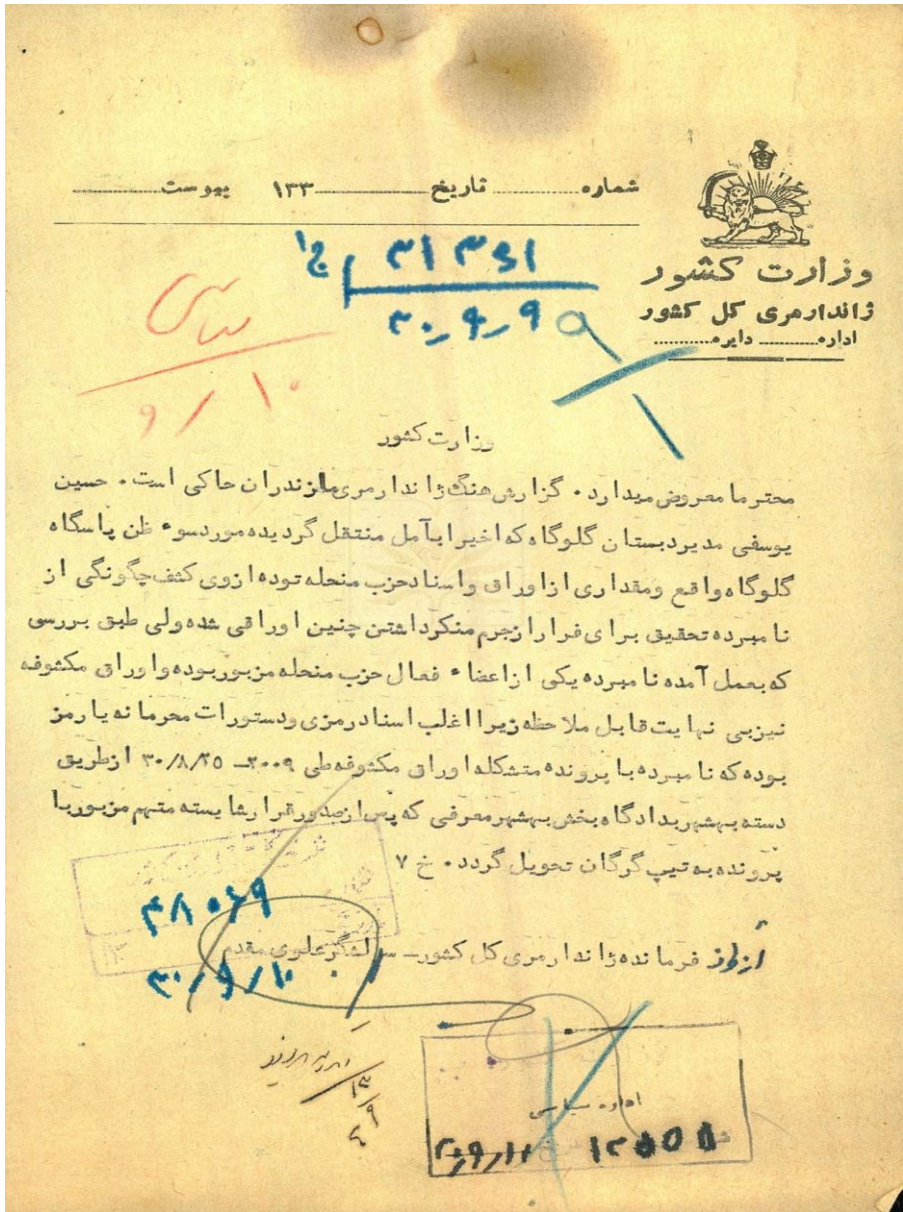 شماره ............ تاریخ ............ ۱۳۳ پیوست ............
وزارت کشور
ژاندارمری کل کشور
اداره ............ دایره ............
۳۰٫۹٫۹
۹/۱۰
وزارت کشور
محترما معروض میدارد. گزارش هنگ ژاندارمری مازندران حاکی است. حسین
یوسفی مدیر دبستان گلوگاه که اخیرا بآمل منتقل گردیده مورد سوء ظن پاسگاه
گلوگاه واقع ومقداری از اوراق واسناد حزب منحله توده ازوی کشف چگونگی از
نامبرده تحقیق برای فرار ازجرم منکر داشتن چنین اوراقی شده ولی طبق بررسی
که بعمل آمده نامبرده یکی از اعضاء فعال حزب منحله مزبور بوده و اوراق مکشوفه
نیز بی نهایت قابل ملاحظه زیرا اغلب اسناد رمزی ودستورات محرمانه یا رمز
بوده که نامبرده با پرونده متشکله اوراق مکشوفه طی ۲۰۰۹ـ ۳۰/۸/۲۵ ازطریق
دسته بهشهر بدادگاه بخش بهشهر معرفی که پس ازصدور قرار شایسته متهم مزبور با
پرونده به تیپ گرگان تحویل گردد. خ ۷
از طرف فرمانده ژاندارمری کل کشور ـ سرلشگر علوی مقدم
۳۰/۹/۱۰
اداره سیاسی
۳۰/۹/۱۱